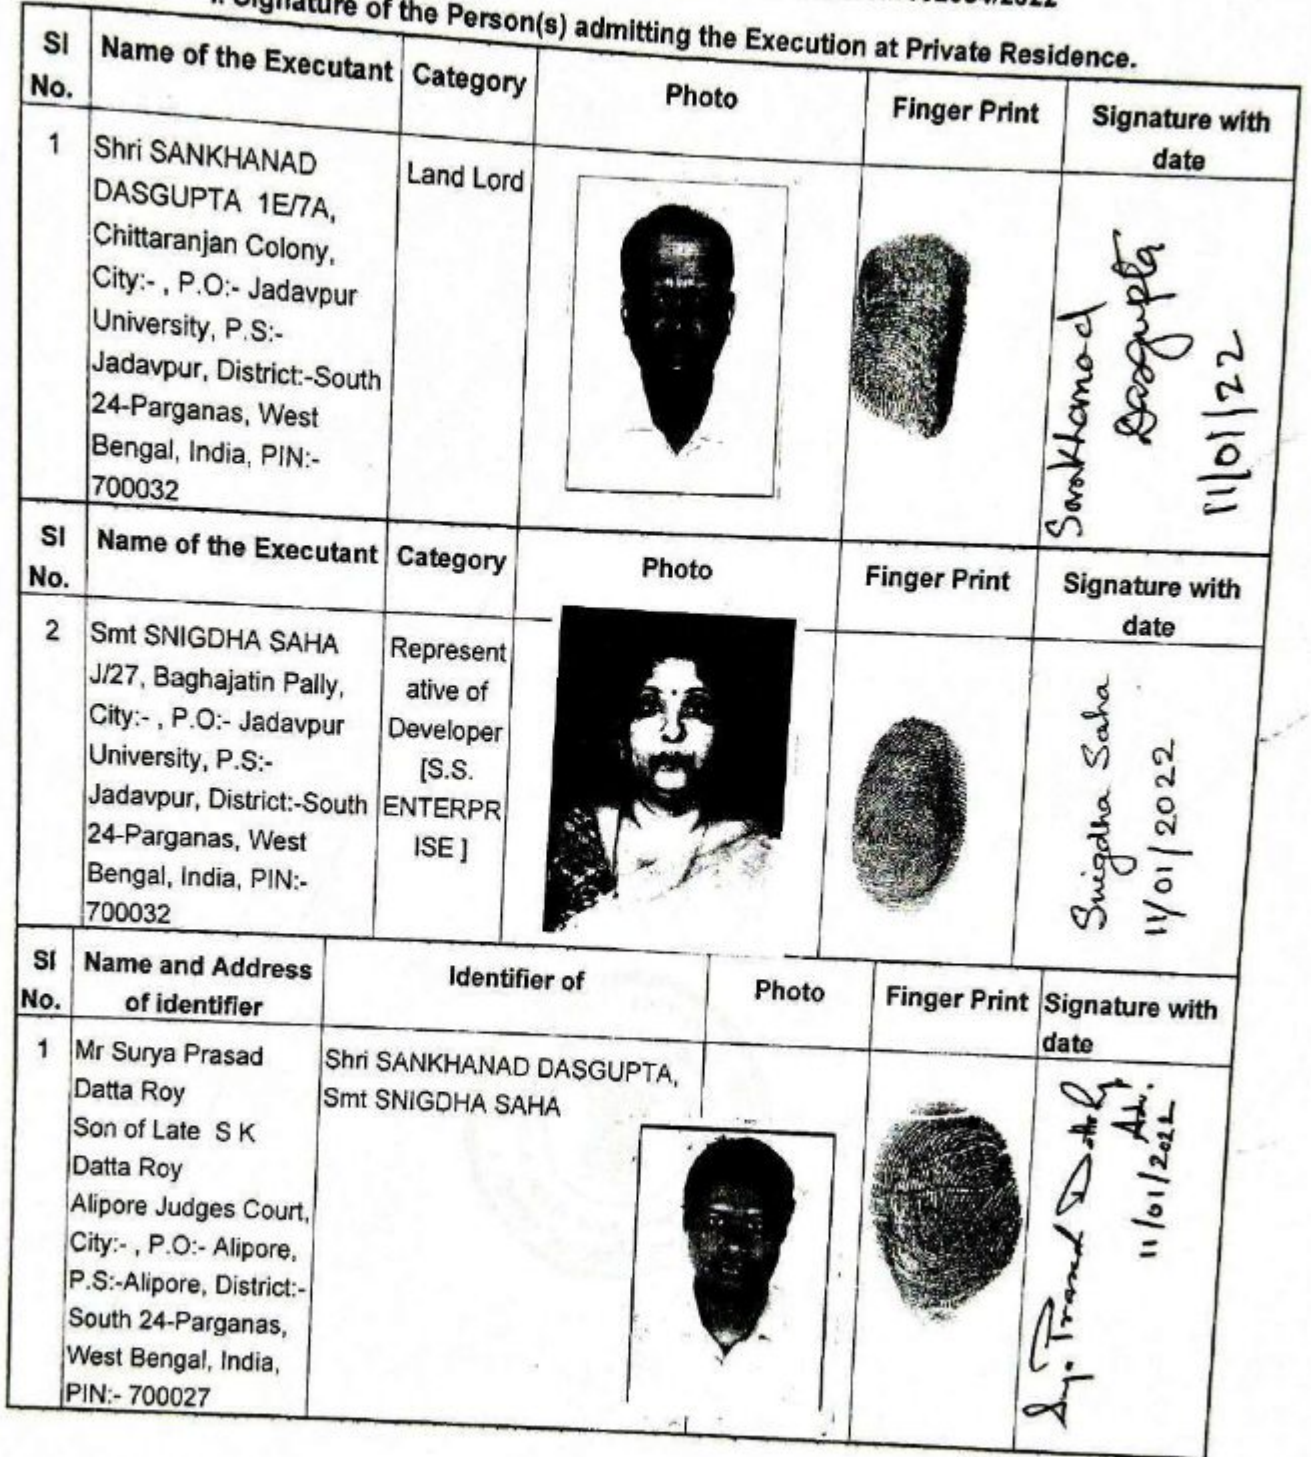 Signature of the Person(s) admitting the Execution at Private Residence.
Sl No.
Name of the Executant
Category
Photo
Finger Print
Signature with date
1
Shri SANKHANAD
DASGUPTA 1E/7A,
Chittaranjan Colony,
City:- , P.O:- Jadavpur
University, P.S:-
Jadavpur, District:-South
24-Parganas, West
Bengal, India, PIN:-
700032
Land Lord
Sankhanad
Dasgupta
11/01/22
Sl No.
Name of the Executant
Category
Photo
Finger Print
Signature with date
2
Smt SNIGDHA SAHA
J/27, Baghajatin Pally,
City:- , P.O:- Jadavpur
University, P.S:-
Jadavpur, District:-South
24-Parganas, West
Bengal, India, PIN:-
700032
Represent
ative of
Developer
[S.S.
ENTERPR
ISE ]
Snigdha Saha
11/01/2022
Sl No.
Name and Address
of identifier
Identifier of
Photo
Finger Print
Signature with date
1
Mr Surya Prasad
Datta Roy
Son of Late S K
Datta Roy
Alipore Judges Court,
City:- , P.O:- Alipore,
P.S:-Alipore, District:-
South 24-Parganas,
West Bengal, India,
PIN:- 700027
Shri SANKHANAD DASGUPTA,
Smt SNIGDHA SAHA
Adv.
11/01/2022